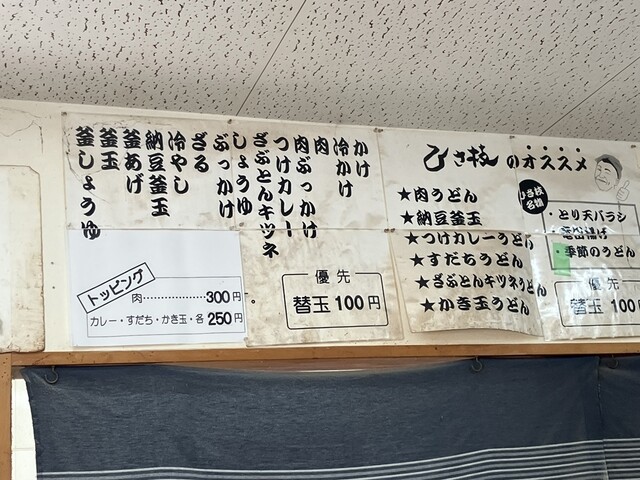 かけ
冷かけ
肉
肉ぶっかけ
つけカレー
ざぶとんキツネ
しょうゆ
ぶっかけ
ざる
冷やし
納豆釜玉
釜あげ
釜玉
釜しょうゆ
トッピング
肉……………300円
カレー・すだち・かき玉・各250円
優先
替玉100円
ひさ枝のオススメ
★肉うどん
★納豆釜玉
★つけカレーうどん
★すだちうどん
★ざぶとんキツネうどん
★かき玉うどん
ひさ枝
名物
・とり天バラシ
揚げ
・季節のうどん
優先
替玉100